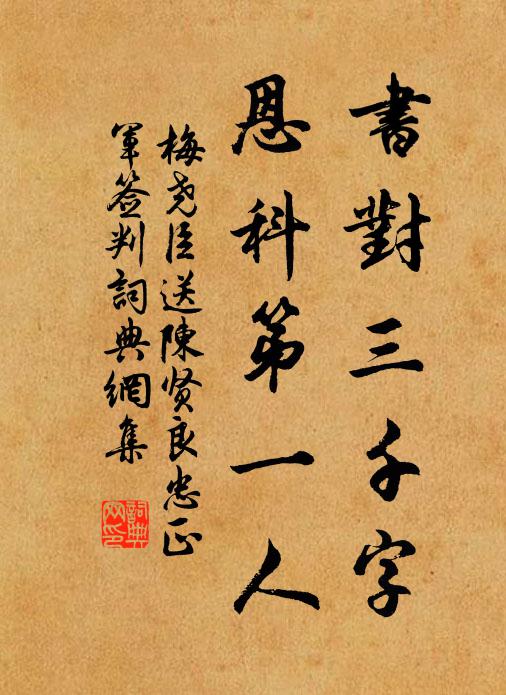 書對三千字
恩科第一人
梅尧臣送陳贤良忠正
軍簽判詞典網集
詞典
网印